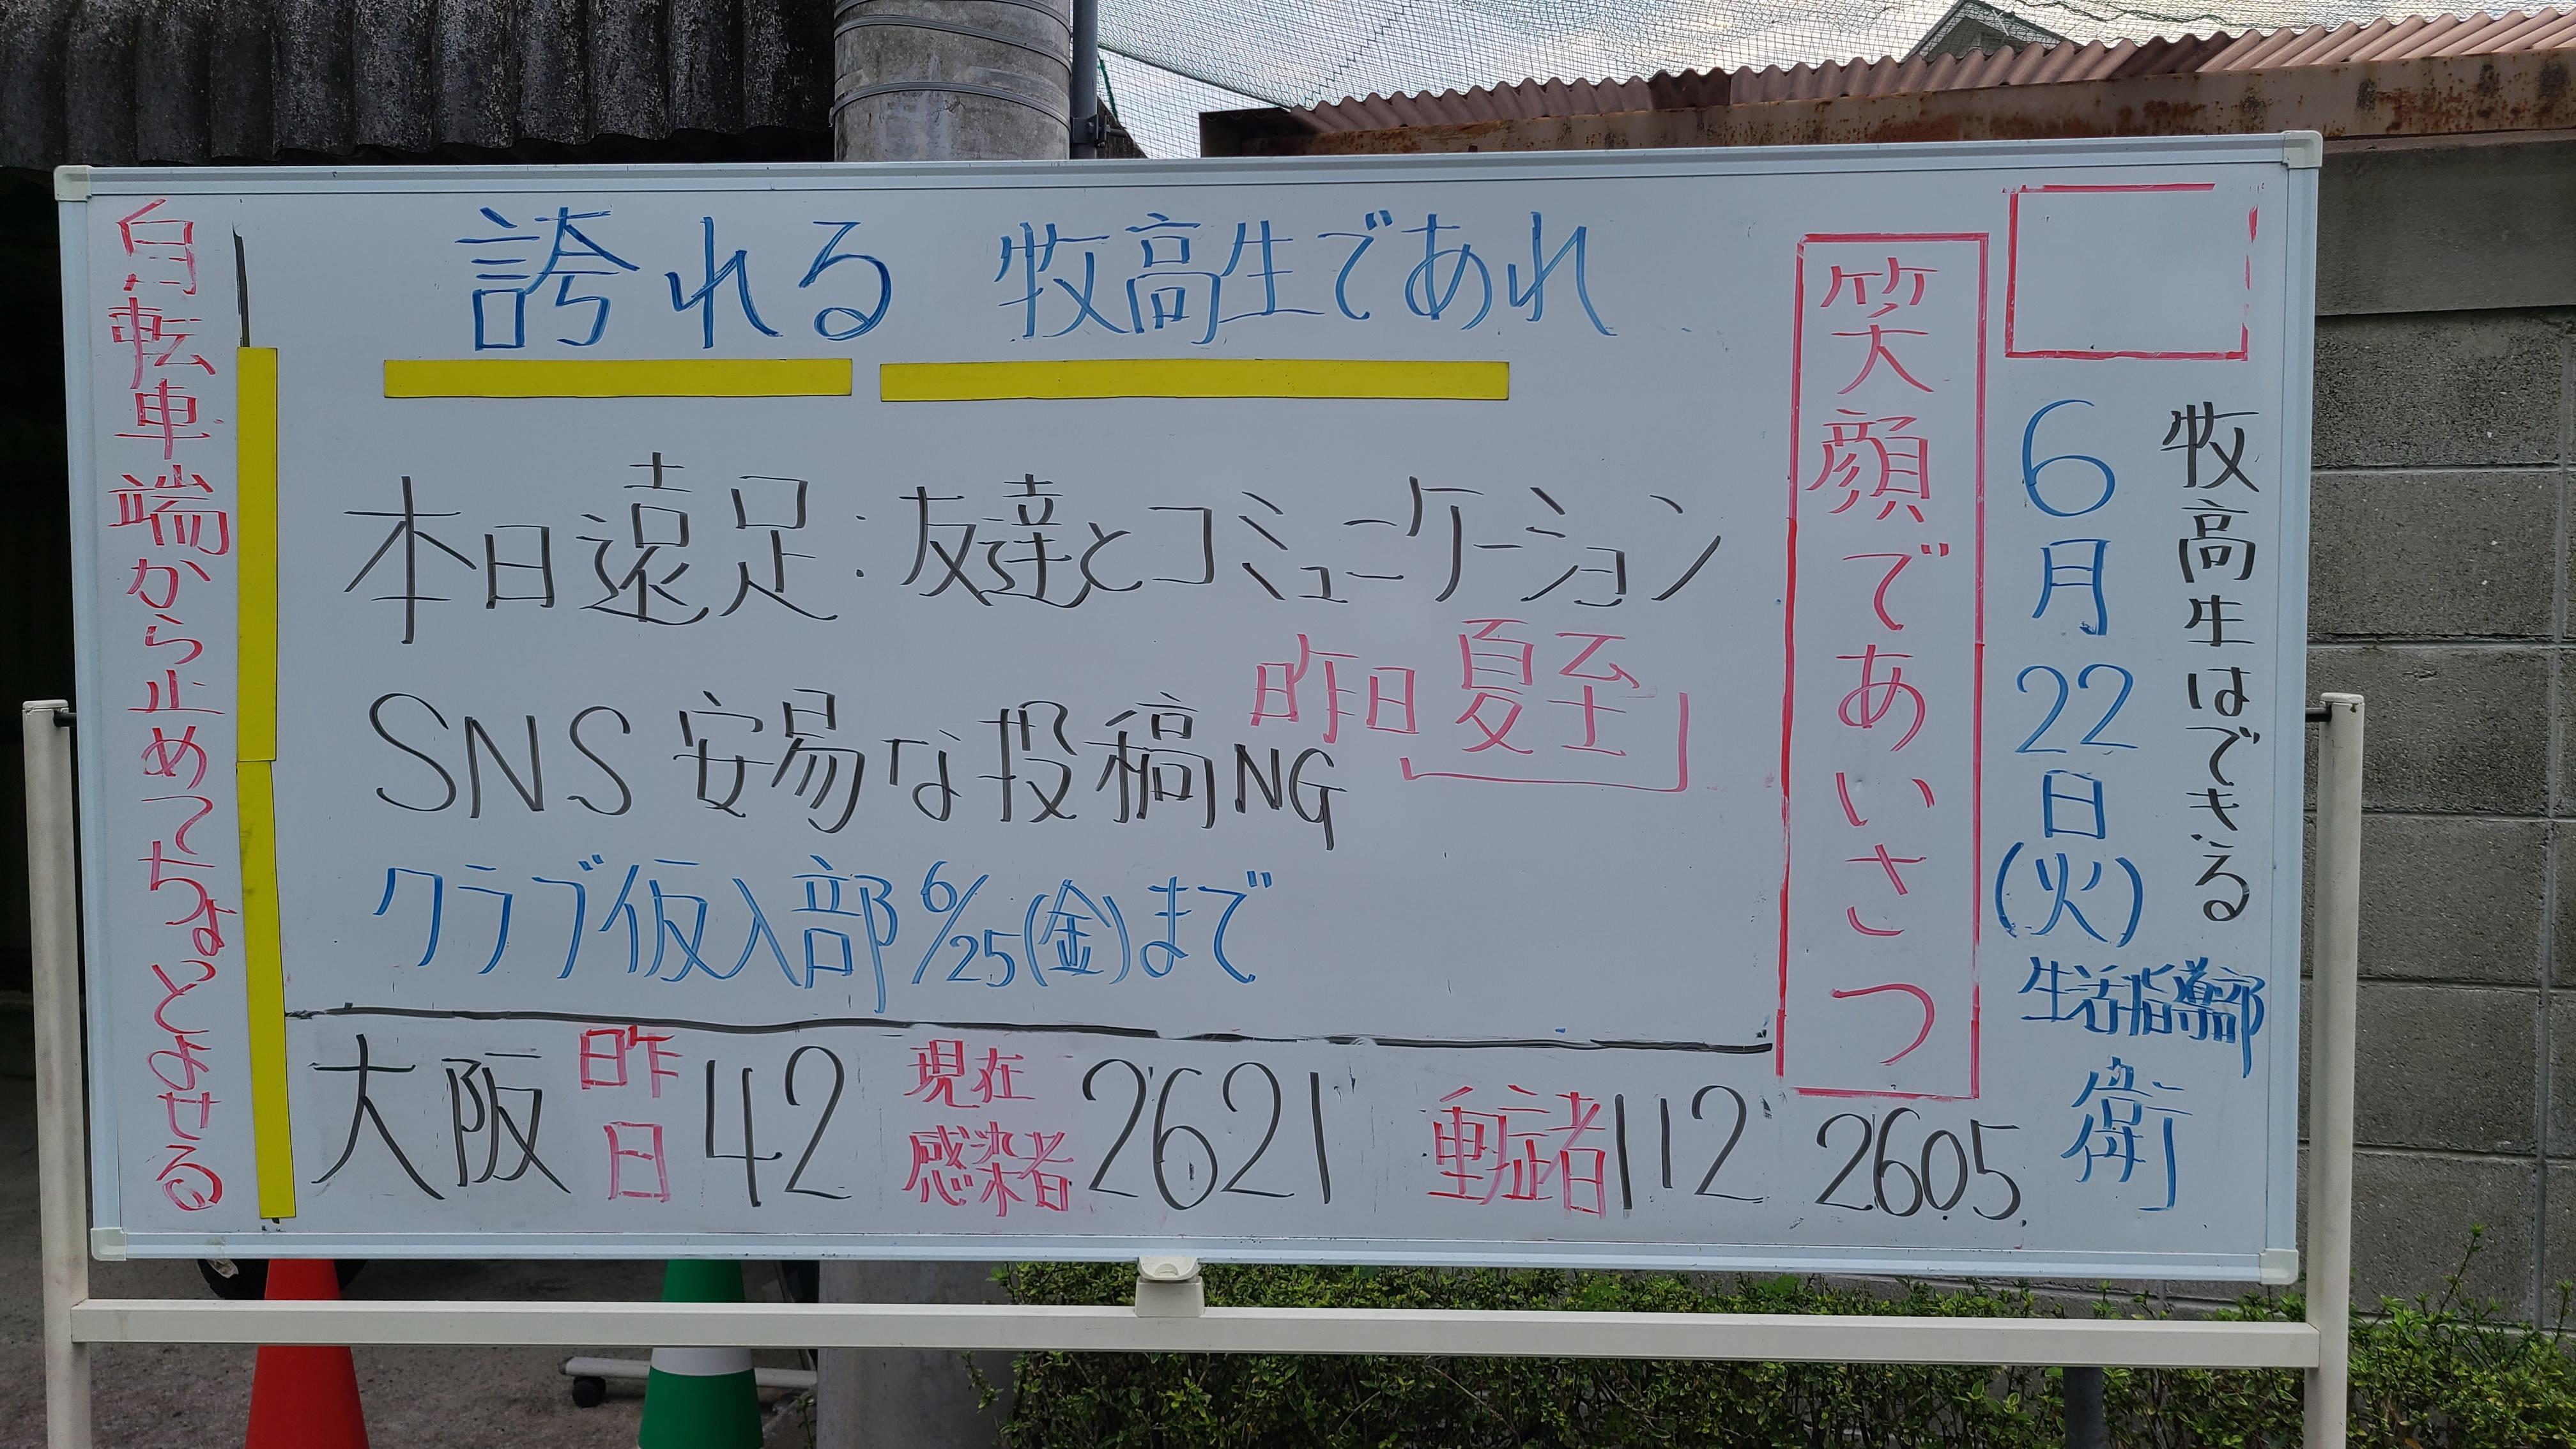 誇れる 牧高生であれ
牧高生はできる
6月22日(火)
生活指導部
衛
笑顔であいさつ
本日遠足:友達とコミュニケーション
昨日夏至
SNS 安易な投稿NG
クラブ仮入部6/25(金)まで
大阪 昨日 42 現在感染者 2621 重症者 112 2605
自転車端から止めてちょっとよせる